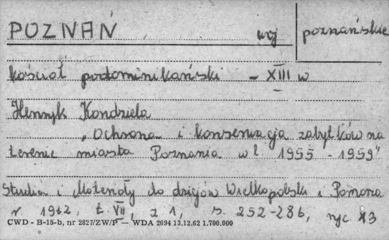 POZNAŃ woj poznańskie
kościół podominikański - XIII w
Henryk Kondziela
"Ochrona i konserwacja zabytków na
terenie miasta Poznania w l 1955 - 1959"
Studia i Materiały do dziejów Wielkopolski i Pomorza
r 1962, t. VII, z 1, s. 252-286, ryc 43
CWD - B-18-b, nr 2827/ZW/P — WDA 2694 13.12.62 1.700.000